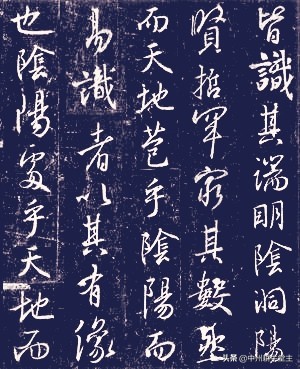 皆識其端明陰洞陽
賢哲罕窮其數然
而天地苞乎陰陽而
易識者以其有像
也陰陽處乎天地而
头条 @中州堂主